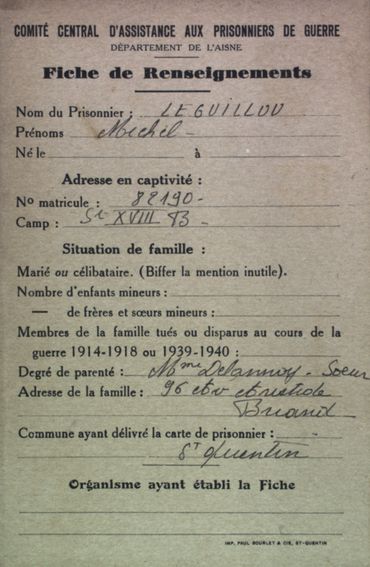 COMITÉ CENTRAL D'ASSISTANCE AUX PRISONNIERS DE GUERRE
DÉPARTEMENT DE L'AISNE
Fiche de Renseignements
Nom du Prisonnier : LE GUILLOU
Prénoms Michel -
Né le à
Adresse en captivité :
No matricule : 82190 -
Camp : St XVIII B
Situation de famille :
Marié ou célibataire. (Biffer la mention inutile).
Nombre d'enfants mineurs :
— de frères et sœurs mineurs :
Membres de la famille tués ou disparus au cours de la
guerre 1914-1918 ou 1939-1940 :
Degré de parenté : Mme Delannoy - Soeur
Adresse de la famille : 96 Av Aristide
Briand
Commune ayant délivré la carte de prisonnier :
St Quentin
Organisme ayant établi la Fiche
IMP. PAUL BOURLET & CIE, ST-QUENTIN